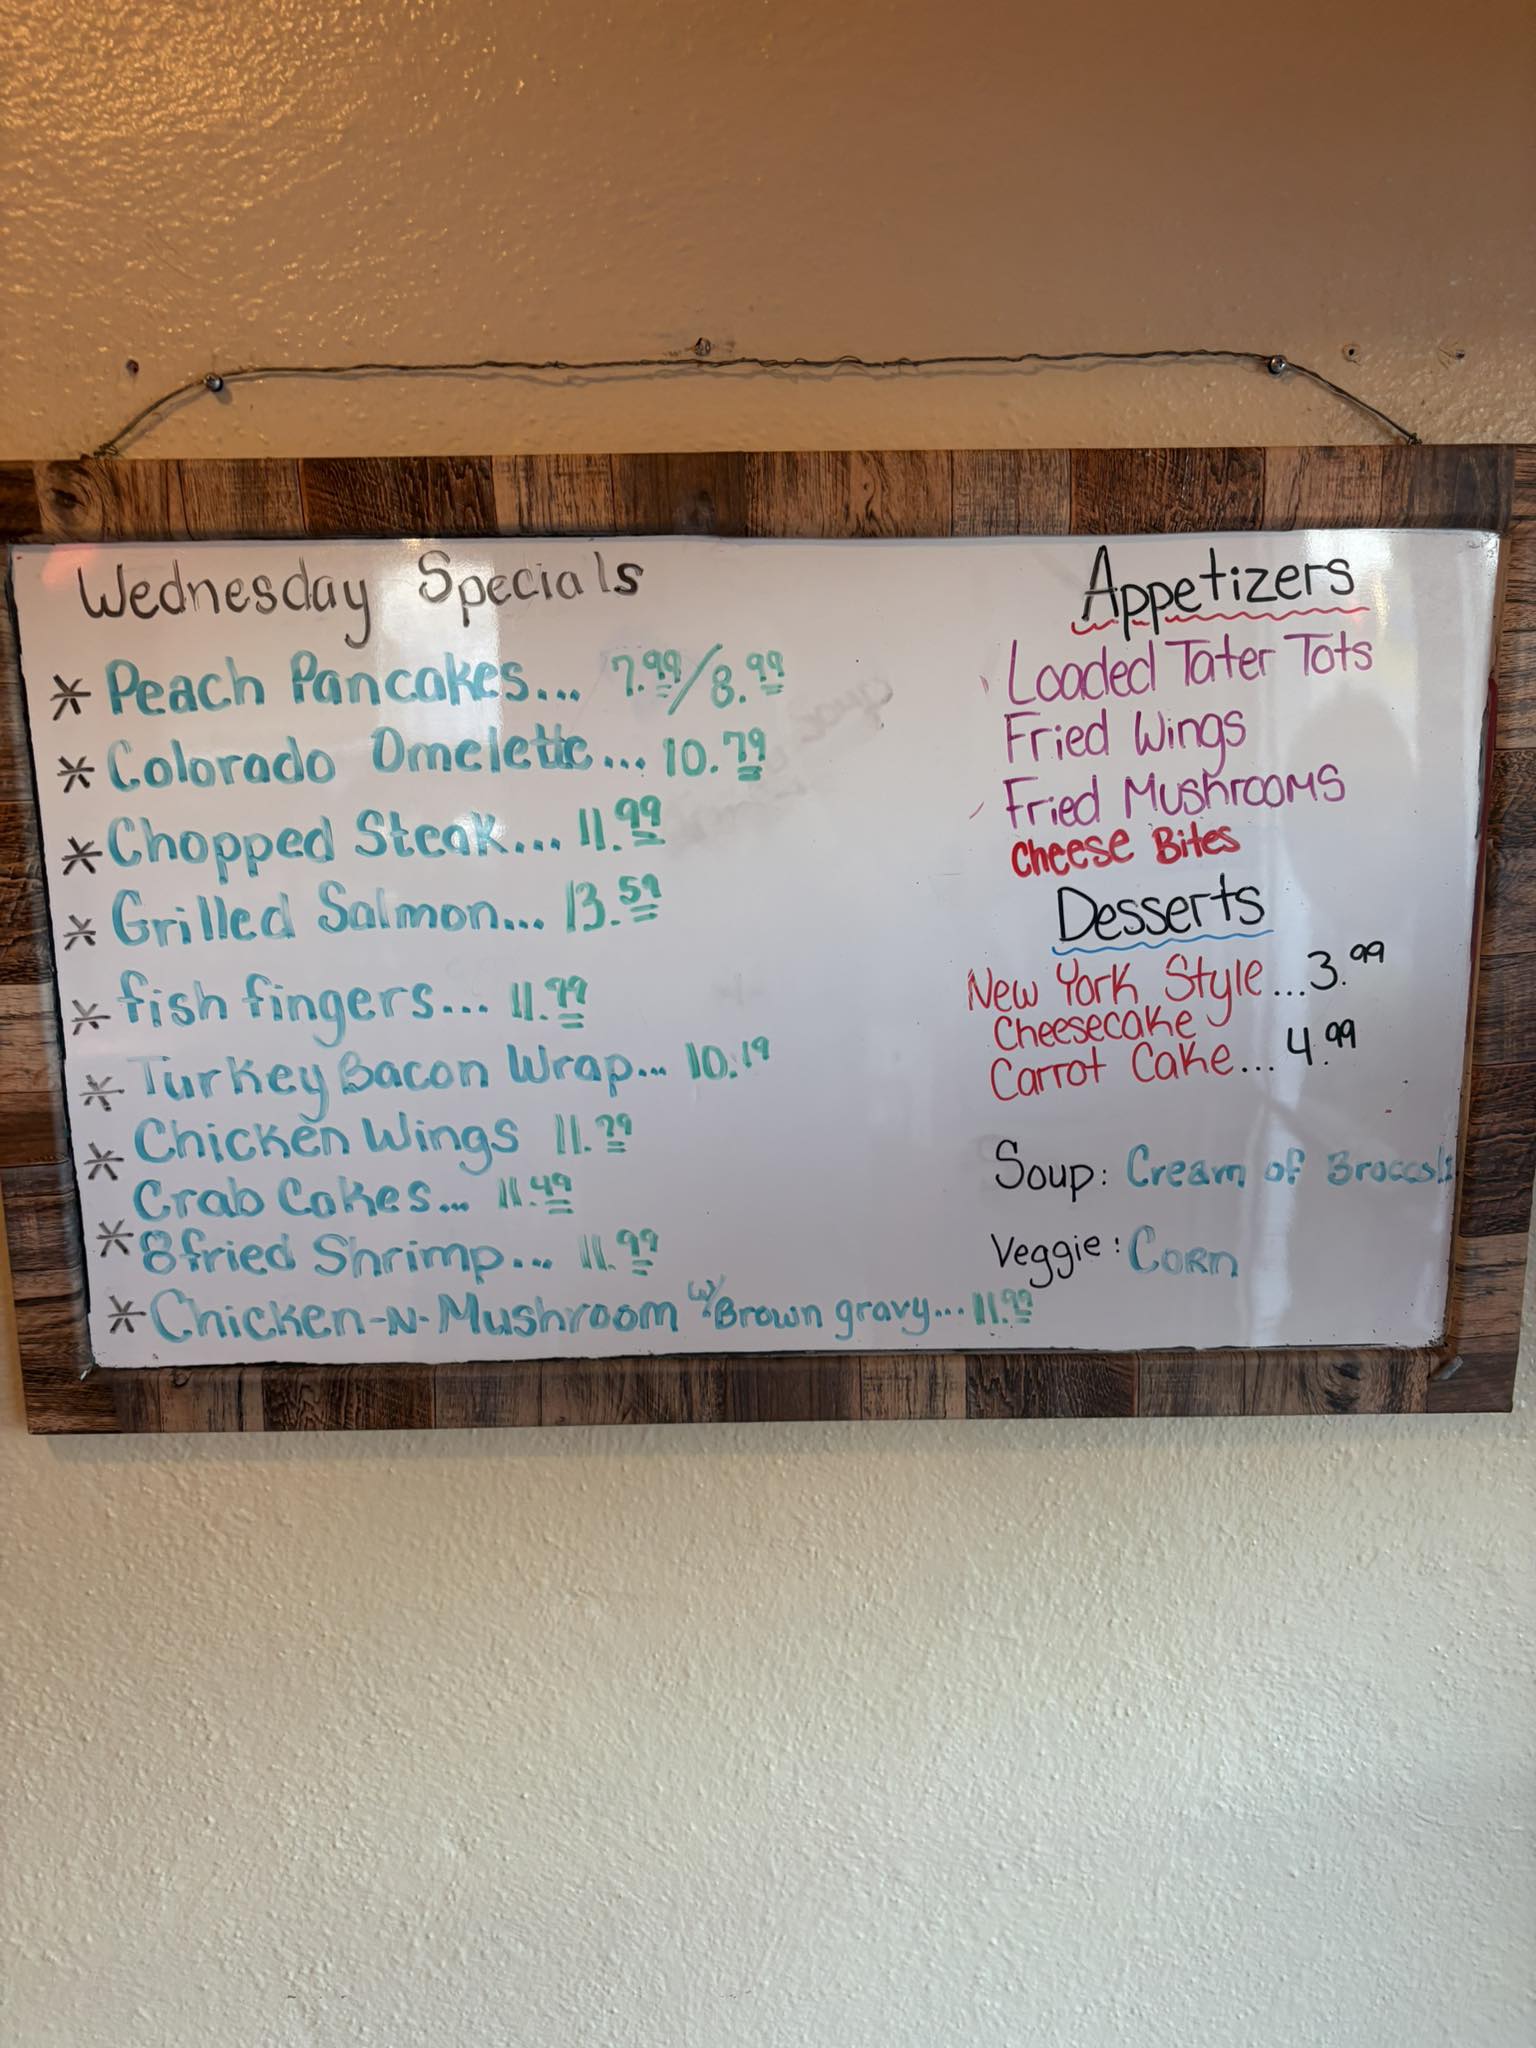 Wednesday Specials
* Peach Pancakes... 7.99/8.99
* Colorado Omelette... 10.79
* Chopped Steak... 11.99
* Grilled Salmon... 13.59
* fish fingers... 11.99
* Turkey Bacon Wrap... 10.19
* Chicken Wings 11.79
Crab Cakes... 11.49
* 8 fried Shrimp... 11.99
* Chicken-N-Mushroom w/ Brown gravy... 11.99
Appetizers
Loaded Tater Tots
Fried Wings
Fried Mushrooms
Cheese Bites
Desserts
New York Style...3.99
Cheesecake
Carrot Cake...4.99
Soup: Cream of Broccoli
Veggie: Corn